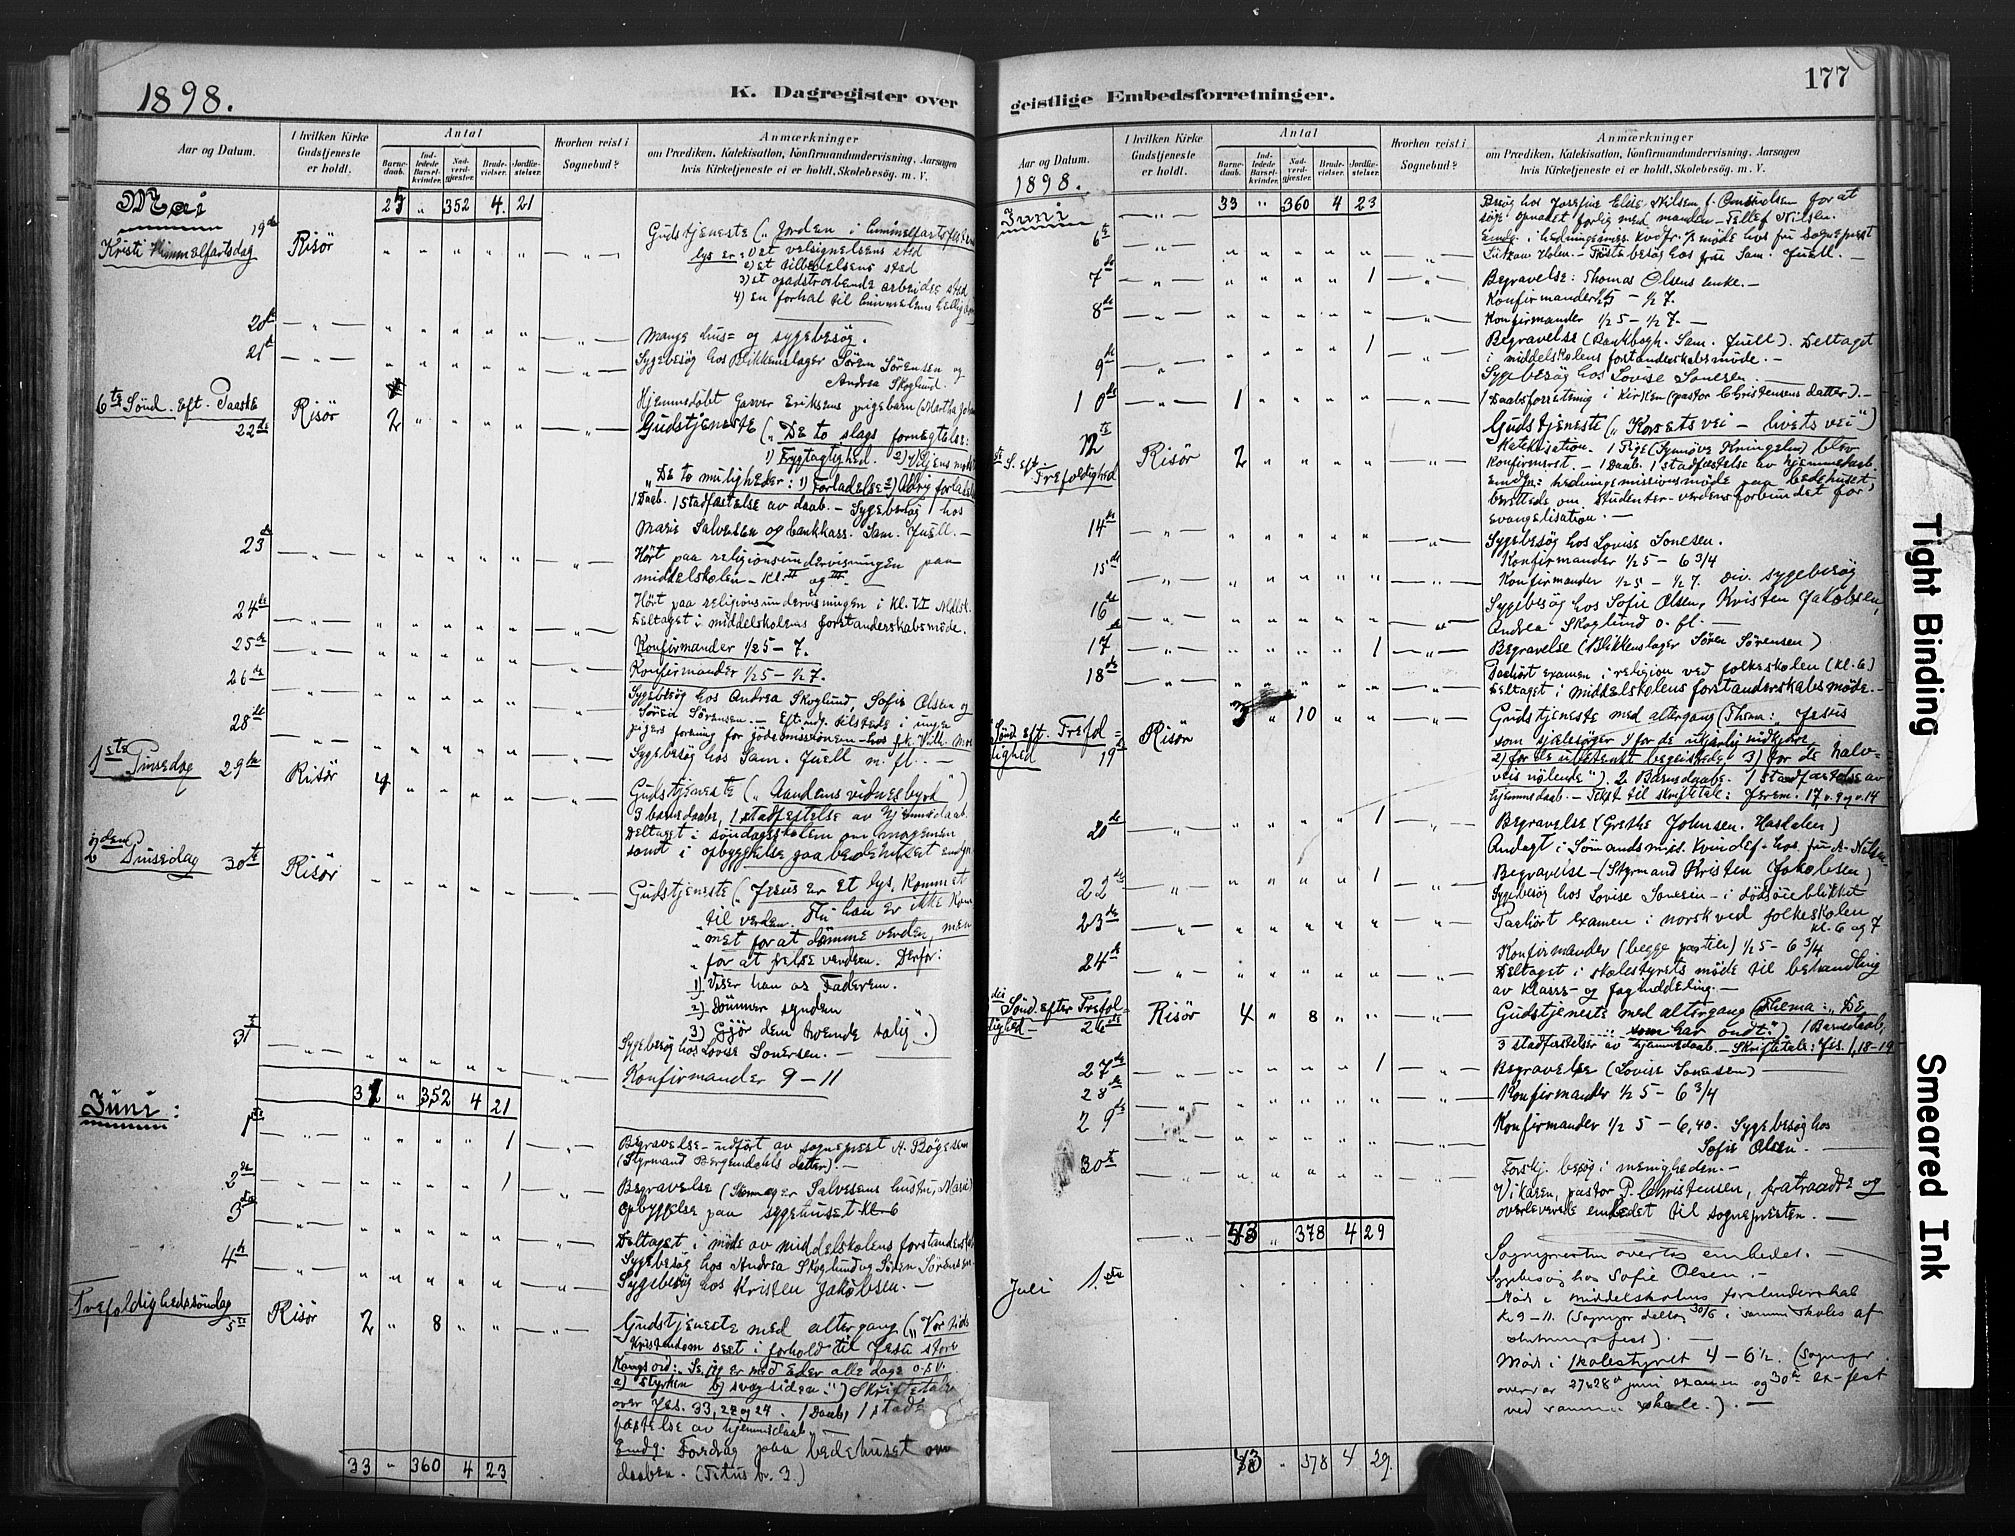 1898.
K. Dagregister over
Aar og Datum.
I hvilken Kirke
Gudstjeneste
er holdt.
Antal
Barne-
daab.
Ind-
ledede
Barsel-
kvinder.
Nad-
verd-
gjæster.
Brude-
vielser.
Jordfæ-
stelser.
Hvorhen reist i
Sognebud?
Anmærkninger
om Prædiken, Katekisation, Konfirmandundervisning, Aarsagen
hvis Kirketjeneste ei er holdt, Skolebesög. m. V.
Mai 25 „ 352 4 21
19de
Kristi Himmelfartsdag Risör
Gudstjeneste („Jorden i himmelfartsfestens
lys er: 1) et velsignelsens sted
2) et tilbedelsens sted
3) et opadstræbende arbeides sted
4) en forhal til himmelens
20de Mange hus= og sygebesög.
21de Sygebesög hos Blikkenslager Sören Sörensen og
Andrea Skoglund.
6te Sönd. eft. Paaske Risör 2
Hjemmedöbt Gasver Eriksens pigebarn (Martha
22de Gudstjeneste („De to slags fornegtelse:
1) Frygtagtighed. 2) Viljens
„De to muligheder: 1) Forladelse 2) Aldrig
1 Daab. 1 Stadfæstelse av daab. – Sygebesög hos
Marie Salvesen og bankkass. Sam. Juell. –
23de Hört paa religionsundervisningen paa
middelskolen – Kl. II og III. –
24de Hört paa religionsundervisningen i Kl. VI Mdlsk.
Deltaget i middelskolens forstanderskabsmöde.
25de Konfirmander ½5 – 7.
26de Konfirmander ½5 – ½7.
Sygebesög hos Andrea Skoglund, Sofie Olsen og
Sören Sörensen. – Eft. tilstede i unge
28de pigers forening for jödemissionen – hos frk. Vilh. Moe
Sygebesög hos Sam. Juell m. fl. –
1ste Pinsedag 29de Risör 4
Gudstjeneste („Aandens vidnesbyrd“)
3 barnedaabe, 1 stadfæstelse av hjemmedaab.
Deltaget i söndagsskolen om morgenen
samt i opbyggelse paa bedehuset
2den Pinsedag 30te Risör
Gudstjeneste („Jesus er et lys, kommet
„til verden. Thi han er ikke kom
„met for at dömme verden, men
„for at frelse verden. Derfor:
1) Viser han os Faderen.
2) Dömmer synden
3) Gjör den troende salig“.)
31te Sygebesög hos Lovise Sonesen. –
Konfirmander 9 – 11
31 „ 352 4 21
Juni:
1ste 1 Begravelse – udfört av sogneprest A. Bögesen
(Styrmand Bergendahls datter). –
2den 1 Begravelse (Skomager Salvesens hustru, Marie)
3die Opbyggelse paa sygehuset kl. 6
Deltaget i möde av middelskolens forstandersk
4de Sygebesög hos Andrea Skoglund og Sören Sörensen.
Sygebesög hos Kristen Jakobsen. –
Trefoldighedssöndag
5te Risör 2 „ 8
Gudstjeneste med altergang („Vor tids
Kristendom seet i forhold til Jesu store
Kongsord: Se, jeg er med Eder alle dage o.s.v.
a) styrken b) svagsiden.“) Skriftetale
over Jes. 33, 22 og 24. 1 Daab, 1 stad
fæstelse av hjemmedaab
Emdg: Foredrag paa bedehuset om
daaben. (Titus br. 3.)
33 „ 360 4 23
geistlige Embedsforretninger.
177
Aar og Datum.
1898.
I hvilken Kirke
Gudstjeneste
er holdt.
Antal
Barne-
daab.
Ind-
ledede
Barsel-
kvinder.
Nad-
verd-
gjæster.
Brude-
vielser.
Jordfæ-
stelser.
Hvorhen reist i
Sognebud?
Anmærkninger
om Prædiken, Katekisation, Konfirmandundervisning, Aarsagen
hvis Kirketjeneste ei er holdt, Skolebesög. m. V.
Juni 33 „ 360 4 23
Besög hos Josefine Elise Nilsen f. for at
söge opnaaet forlig med manden – Tellef Nilsen.
6te Emdg. i hedningemiss. kvdfr. möde hos fru sogneprest
Holen. – Tröstebesög hos fru Sam. Juell. –
7de 1 Begravelse: Thomas Olsens enke. –
Konfirmander ½5 – ½7.
8de Konfirmander ½5 – ½7. –
9de 1 Begravelse (Bankbogh. Sam. Juell). Deltaget
i middelskolens forstanderskabsmöde. –
Sygebesög hos Lovise Sonesen.
10de 1 1 Daabsforretning i Kirken (pastor Christensens datter). –
12te
1ste S. eft.
Trefoldighed Risör 2
Gudstjeneste („Korsets vei – livets vei“)
Katekisation. 1 Pige (Synnöve Kningslm) blev
konfirmeret. – 1 Daab. 1 stadfæstelse av hjemmedaab.
Emdg: hedningemissionsmöde paa bedehuset,
berettede om studenter-verdensforbundet for
evangelisation. –
14de Sygebesög hos Lovise Sonesen.
Konfirmander ½5 – 6 3/4
15de Konfirmander ½5 – ½7. Div. sygebesög
16de Sygebesög hos Sofie Olsen, Kristen Jakobsen,
Andrea Skoglund o. fl. –
17de 1 Begravelse (Blikkenslager Sören Sörensen)
18de Paahört examen i religion ved folkeskolen (kl. 6)
Deltaget i middelskolens forstanderskabsmöde. –
Sönd. eft. Trefol=
dighed 19de Risör 3 „ 10
Gudstjeneste med altergang (Thema: „Jesus
som sjælesörger 1) for de
2) for de ubetænkt begeistrede 3) for de halv-
veis nölende“). 2 Barnedaabe. 1 stadfæstelse av
hjemmedaab. – Tekst til skriftetale: Jerem. 17 v. 9 og v. 14
20de 1 Begravelse (Grethe Johnsen. Hasdalen)
Andagt i Sömandsmis. Kvindef. hos. fru A. Nilsen
22de 1 Begravelse – (Styrmand Kristen Jakobsen)
Sygebesög hos Lovise Sonesen – i dödsöieblikket
23de Paahört examen i norsk ved folkeskolen
kl. 6 og 7
24de Konfirmander (begge partier) ½5 – 6 3/4
Deltaget i skolestyrets möde til behandling
av klasse- og faginddeling. –
3die Sönd. efter Trefol=
dighed – 26de Risör 4 „ 8
Gudstjeneste med altergang (Thema: „De
som har ondt.“) 1 Barnedaab,
3 stadfæstelser av hjemmedaab. – Skriftetale: Jes. 1,18–19
27de 1 Begravelse (Lovise Sonesen) –
28de Konfirmander ½5 – 6 3/4
29de Konfirmander ½ 5 – 6,40. Sygebesög hos
Sofie Olsen. –
30te Forskj. besög i menigheden. –
Vikaren, pastor P. Christensen, fratraadte og
overleverede embedet til sognepresten. –
43 „ 378 4 29
Juli 1ste
Sognepresten overtog embedet. –
Sygebesög hos Sofie Olsen. –
Möde i middelskolens forstanderskab
kl. 9 – 11. (Sognepr. deltog 30/6 i samme skoles af
slutningsfest). –
Möde i Skolestyret 4 – 6½. (Sognepr.
overvar 27 & 28de juni examen og 30te ex-fest
ved samme skole.). –
43 „ 378 4 29.
Tight Binding
Smeared Ink